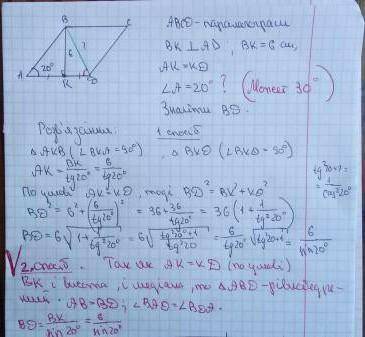 B C
6 ?
A 20° K D
ABCD - паралелограм
BK ⊥ AD, BK = 6 см,
AK = KD
∠A = 20° ? (Может 30°)
Знайти BD.
Розв'язання: 1 спосіб
△ AKB (∠BKA = 90°) , △ BKD (∠BKD = 90°)
AK = BK/tg20° = 6/tg20°
По умові AK = KD, тоді BD² = BK² + KD²
BD² = 6² + (6/tg20°)² = 36 + 36/tg²20° = 36(1 + 1/tg²20°)
BD = 6√(1 + 1/tg²20°) = 6√((tg²20°+1)/tg²20°) = 6/tg20° √(tg²20°+1) = 6/sin20°
tg²20°+1 = 1/cos²20°
2 спосіб. Так як AK = KD (по умові)
BK і висота, і медіана, то △ABD - рівнобедре-
ний. AB = BD; ∠BAD = ∠BDA.
BD = BK/sin20° = 6/sin20°